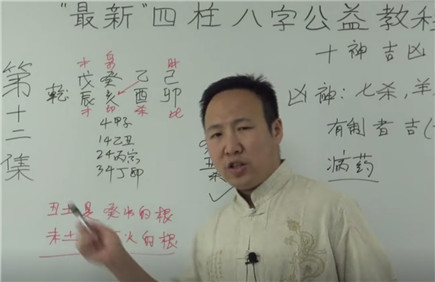 "最新"四柱八字公益教程
第十二集
乾
戊 癸 乙 己
辰 亥 酉 卯
才 印 杀 比
4甲子
14乙丑
24丙寅
34丁卯
丑土是 癸水的根
未土 火的根
十神吉凶
凶神：七杀，羊
有制者吉(
病药
丑